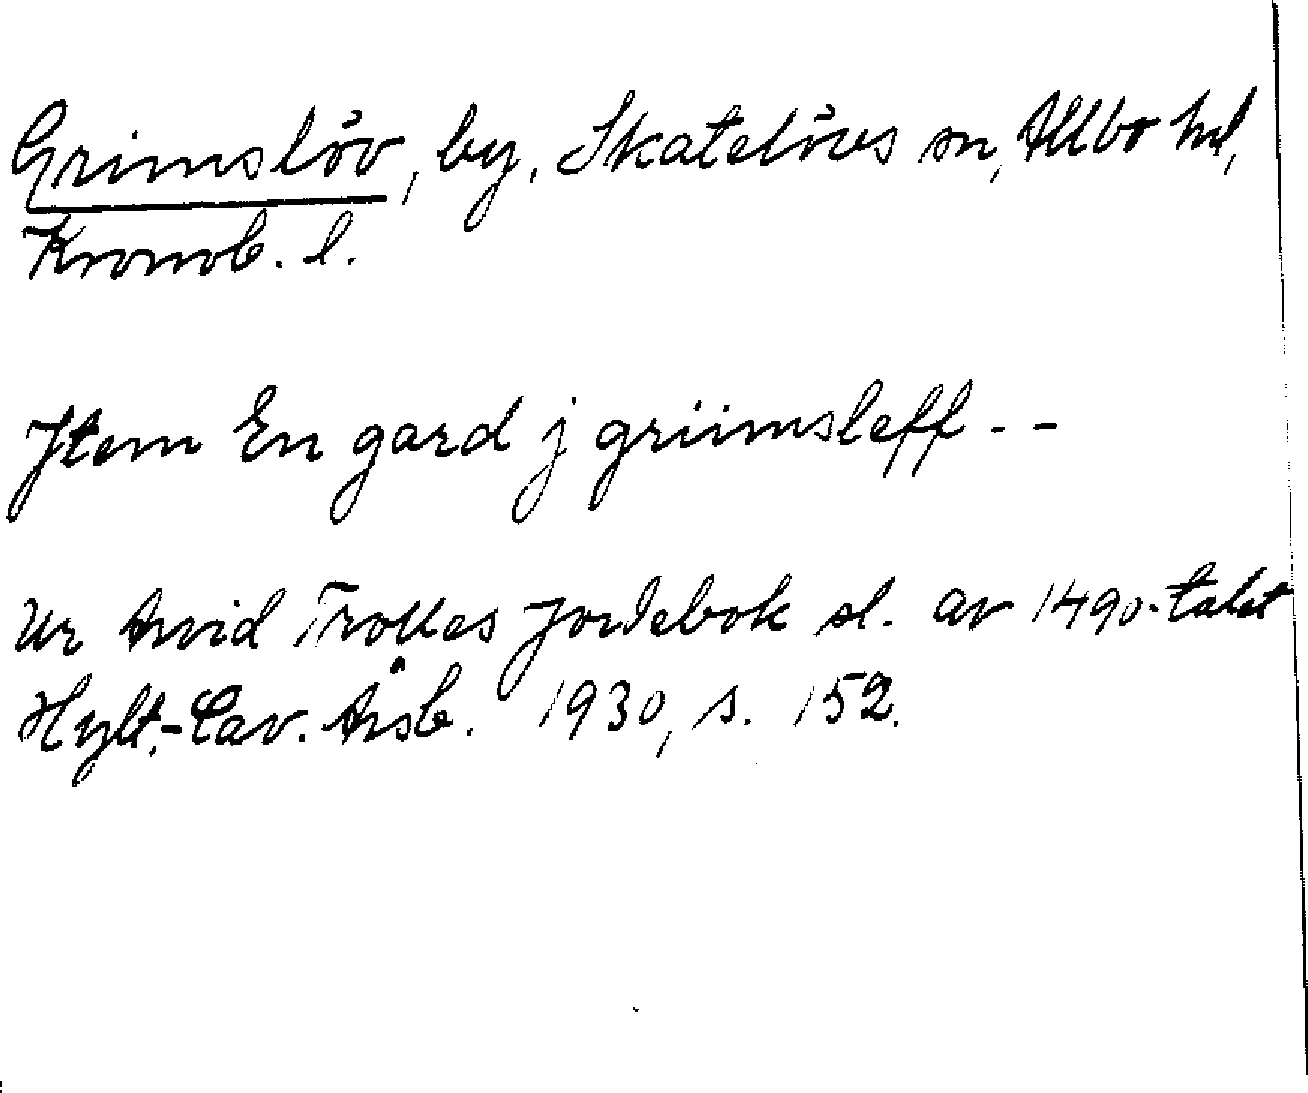 Grimslöv, by, Skatelövs sn, Allbo hd,
Kronob. l.
Jtem En gard j griimsleff - -
Ur Arvid Trolles jordebok sl. av 1490-talet
Hylt.-Cav. Årsb. 1930, s. 152.